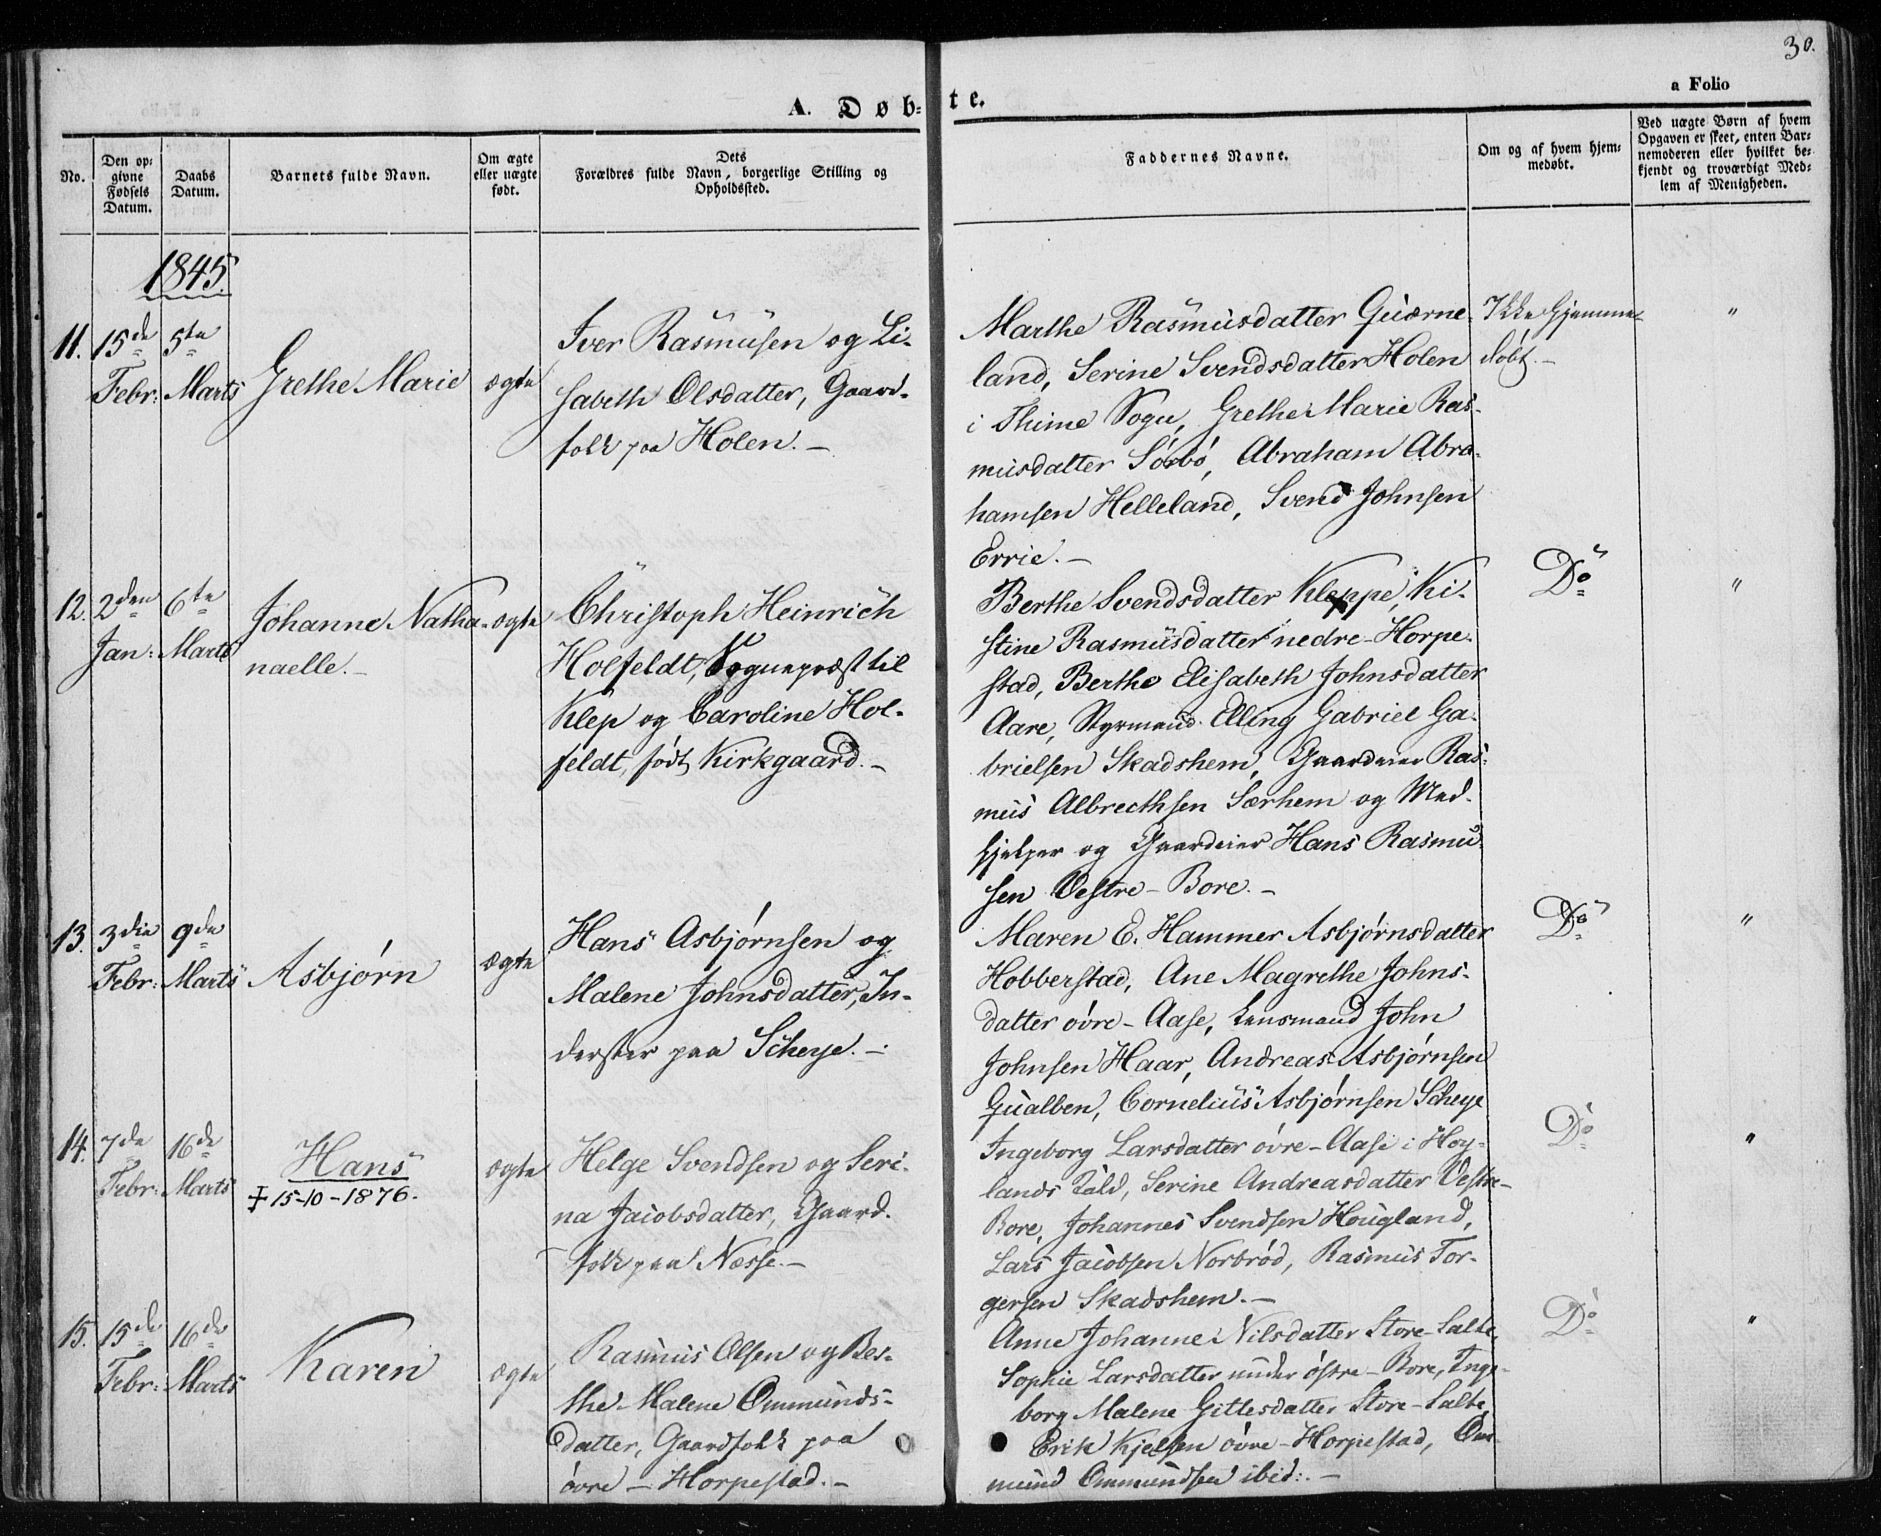 30.
a Folio
A. Døb=
te.
No.
Den op=
givne
Fødsels
Datum.
Daabs
Datum.
Barnets fulde Navn.
Om ægte
eller uægte
født.
Dets
Forældres fulde Navn, borgerlige Stilling og
Opholdssted.
Faddernes Navne.
Om og af hvem hjem=
medøbt.
Ved uægte Børn af hvem
Opgaven er skeet, enten Bar=
nemoderen eller hvilket be=
kjendt og troværdigt Med=
lem af Menigheden.
1845.
11. 15de
Febr:
5te
Marts
Grethe Marie
ægte
Iver Rasmusen og Li-
sabeth Olsdatter, Gaard-
folk paa Holen.-
Marthe Rasmusdatter Quærne-
land, Serine Svendsdatter Holen
i Thime Sogn, Grethe Marie Ras-
musdatter Sörbö, Abraham Abra-
hamsen Helleland, Svend Johnsen
Errie.-
Ikke hjemme-
döbt.-
"
12. 2den
Jan:
6te
Marts
Johanne Natha-
naelle.-
ægte
Christoph Heinrich
Holfeldt, Sognepræst til
Klep og Caroline Hol-
feldt, født Kirkgaard.-
Berthe Svendsdatter Kleppe, Ki-
stine Rasmusdatter nedre-Horpe-
stad, Berthe Elisabeth Johnsdatter
Aare, Styrmand Elling Gabriel Ga-
brielsen Skadshem, Gaardeier Ras-
mus Albrecthsen Særhem og Med-
hjelper og Gaardeier Hans Rasmu-
sen Vestre-Bore.-
Do
"
13. 3die
Febr:
9de
Marts
Asbjørn
ægte
Hans Asbjørnsen og
Malene Johnsdatter, In-
derster paa Scheye.-
Maren E. Hammer Asbjørnsdatter
Hobberstad, Ane Magrethe Johns-
datter övre-Aase, Lensmand John
Johnsen Haar, Andreas Asbjørnsen
Qualben, Cornelius Asbjørnsen Scheye
Do
"
14. 7de
Febr:
16de
Marts
Hans
‡ 15-10-1876.
ægte
Helge Svendsen og Seri-
na Jacobsdatter, Gaard-
folk paa Næsse.-
Ingeborg Larsdatter övre-Aase i Höy-
lands Gild, Serine Andreasdatter Vestre-
Bore, Johannes Svendsen Hougland,
Lars Jacobsen Norbröd, Rasmus Tor-
gersen Skadshem.-
Do
"
15. 15de
Febr:
16de
Marts
Karen
ægte
Rasmus Olsen og Ber-
the Malene Ommunds-
datter, Gaardfolk paa
övre-Horpestad.-
Anne Johanne Nilsdatter Store-Salte,
Sophie Larsdatter under östre-Bore, Inge-
borg Malene Gittesdatter Store-Salte,
Erik Kjelsen övre-Horpestad, Om-
mund Ommundsen ibid:.-
Do
"